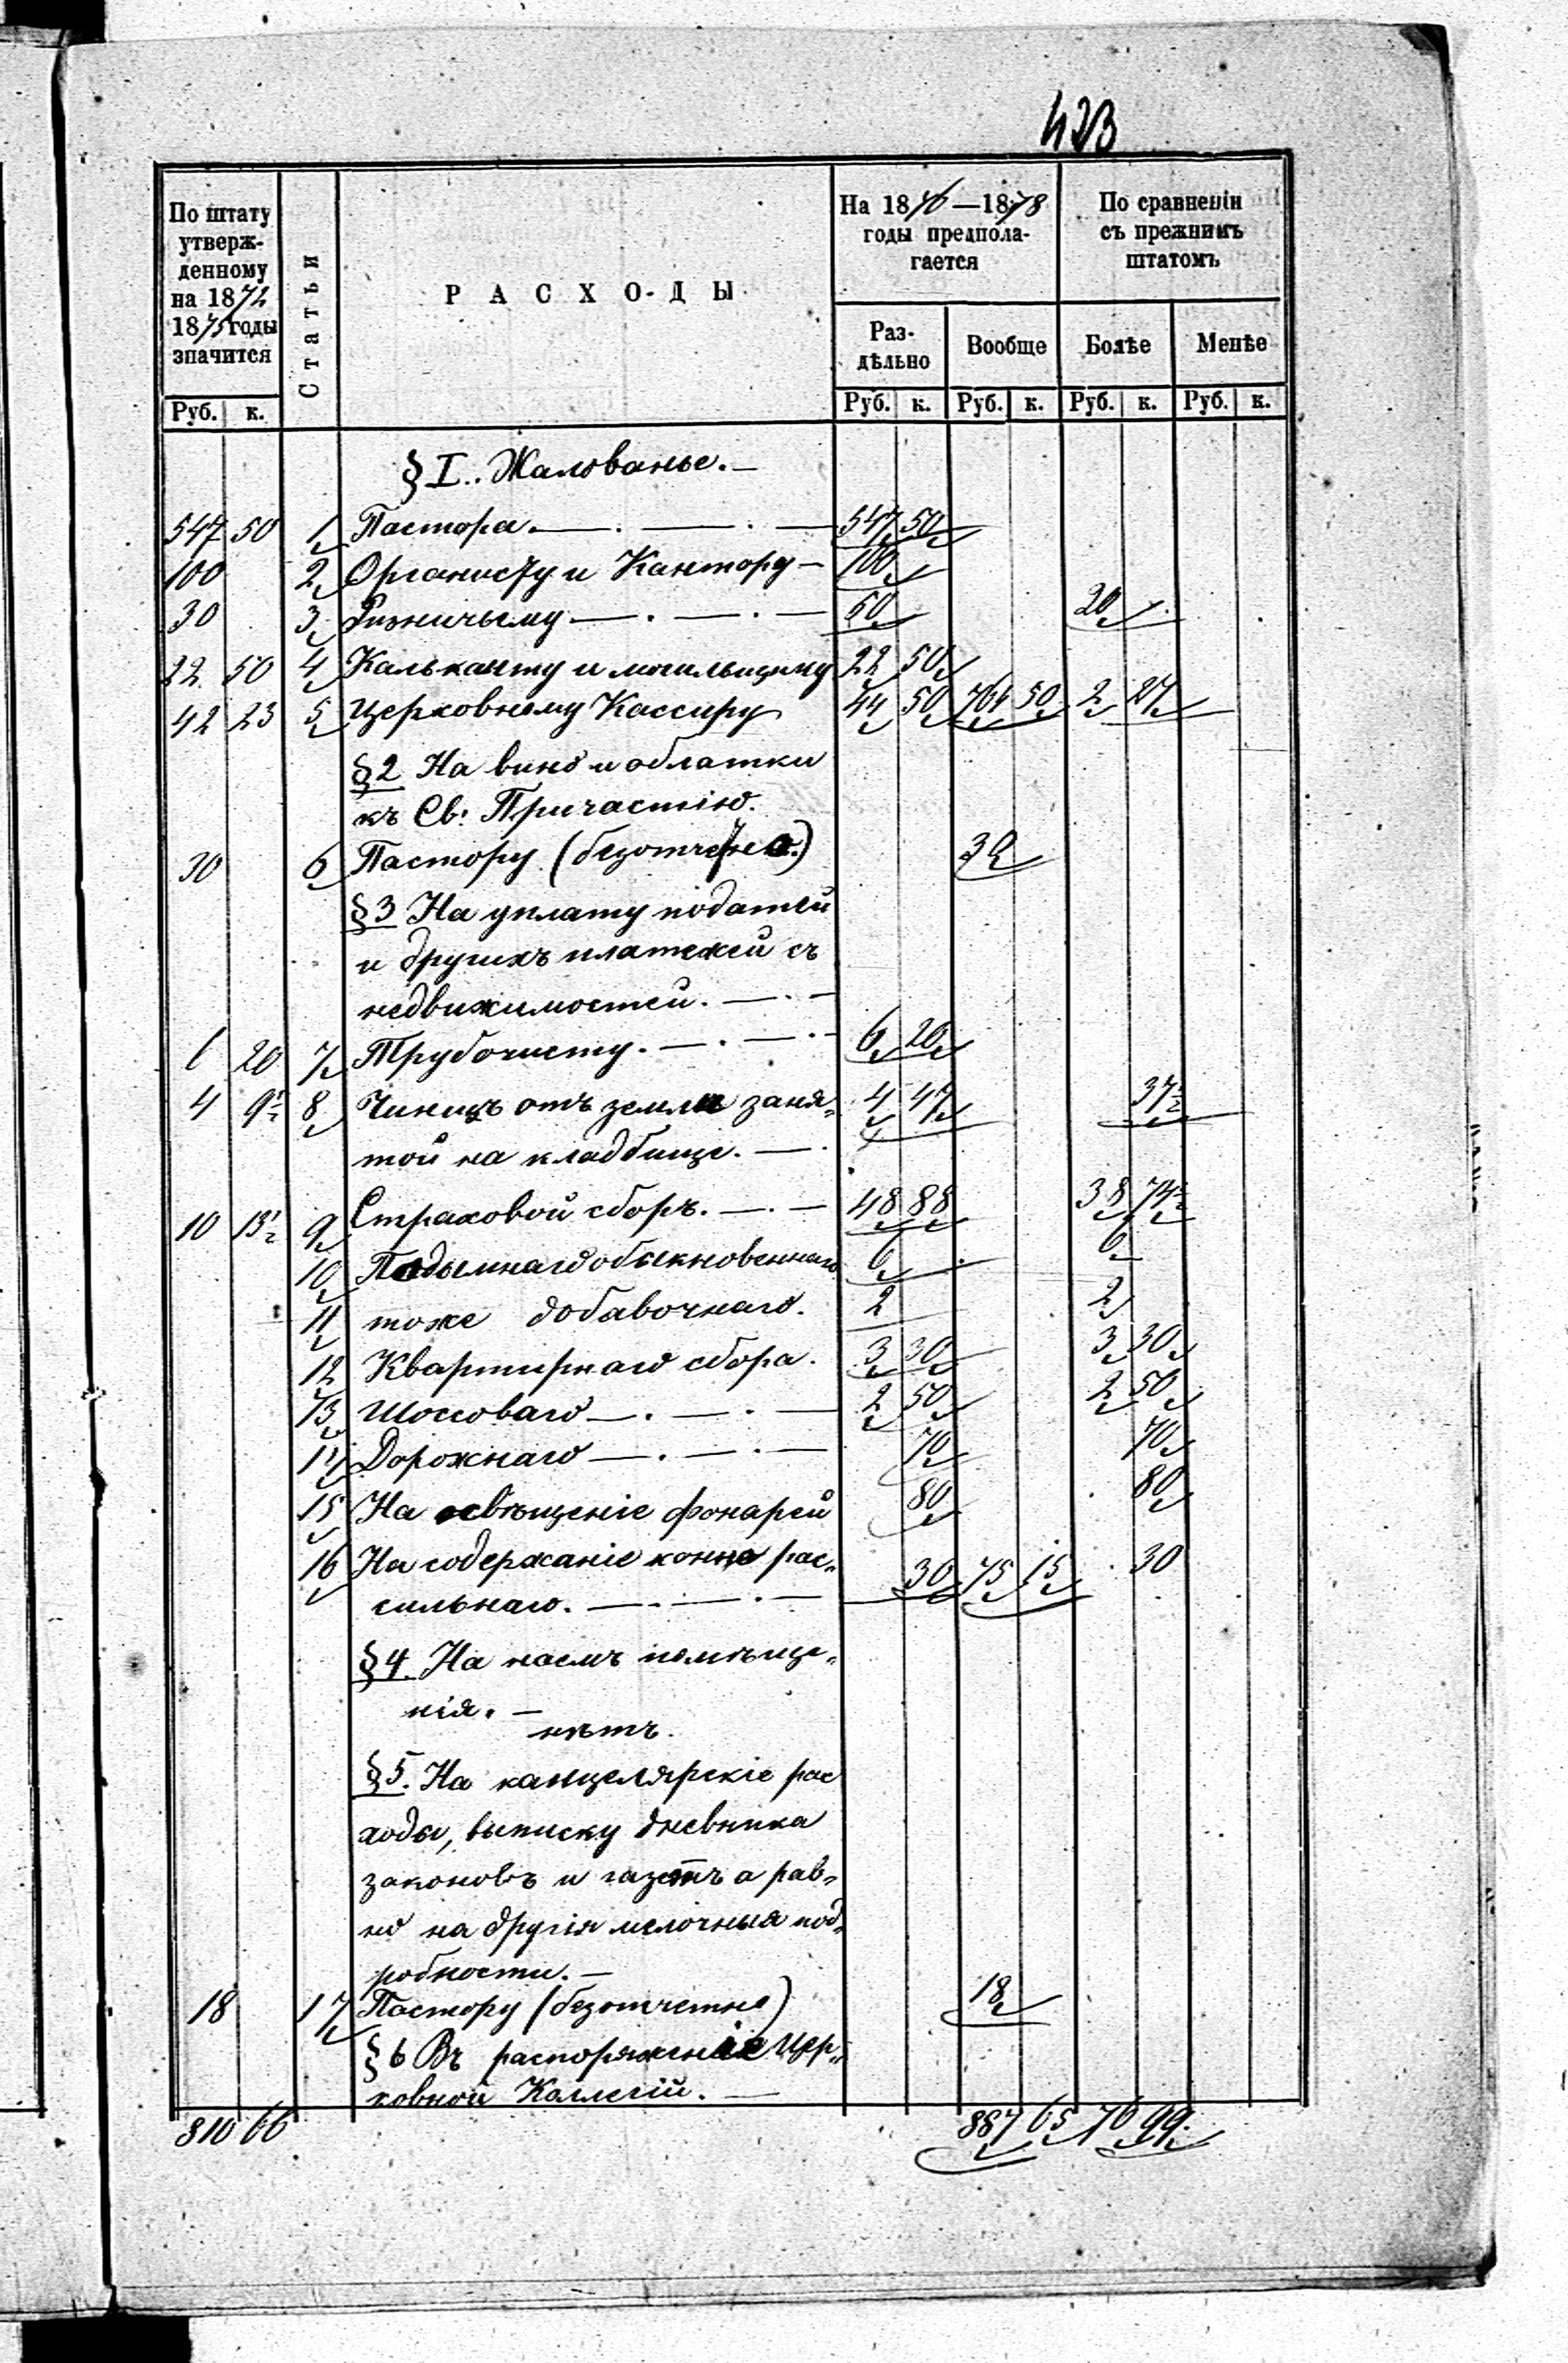 423
По штату утвержденному на 1872 1875 годы значится
Статьи
РАСХОДЫ
На 1876—1878 годы предполагается
По сравненіи съ прежнимъ штатомъ
Раздѣльно Вообще Болѣе Менѣе
Руб. к. Руб. к. Руб. к. Руб. к. Руб. к.
§ I. Жалованье.—
547 50 1 Пастора.—.—.— 547 50
100 2 Органисту и Кантору— 100
30 3 Ризничьему—.—.— 50 20
22 50 4 Кальканту и могильщику 22 50
42 23 5 Церковному Кассиру 44 50 764 50 2 27
§2 На вино и облатки
къ Св: Причастію.
30 6 Пастору (безотчетно.) 30
§3 На уплату податей
и другихъ платежей съ
недвижимостей.—.—
6 20 7 Трубочисту.—.—.— 6 20
4 9½ 8 Чиншъ отъ земли заня-
4 47 37½
той на кладбище.—.
10 13½ 9 Страховой сборъ.—.— 48 88 38 74½
10 Подымнаго обыкновеннаго 6 6
11 тоже добавочнаго. 2 2
12 Квартирнаго сбора. 3 30 3 30
13 Шоссоваго—.—.— 2 50 2 50
14 Дорожнаго—.—.— 70 70
15 На освѣщеніе фонарей 80 80
16 На содержаніе конно рас- 30 75 15 30
сильнаго.—.—.—
§4. На наемъ помѣще-
нія.—
нѣтъ.
§5. На канцелярскіе рас
ходы, выписку дневника
законовъ и газетъ а рав-
но на другія мелочныя под-
робности.—
18 17 Пастору (безотчетно) 18
§6 Въ распоряженіе Цер-
ковной Коллегіи.—
810 66 887 65 76 99.